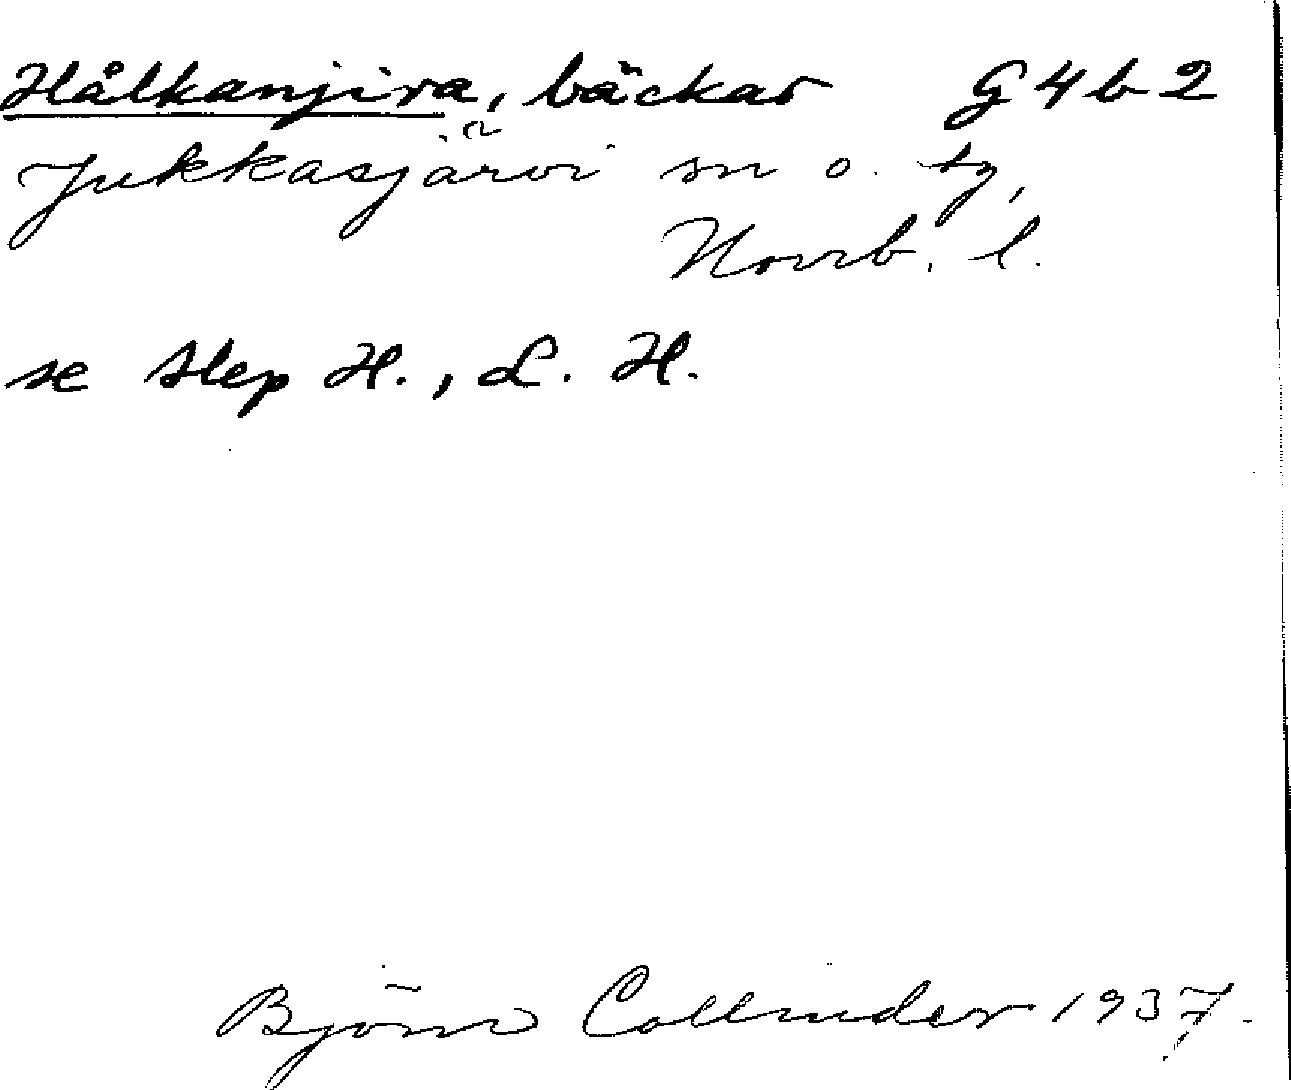 Hålkanjira, bäckar G4b2
Jukkasjärvi sn o. tg,
Norrb. l.
se Slep H., L. H.
Björn Collinder 1937.